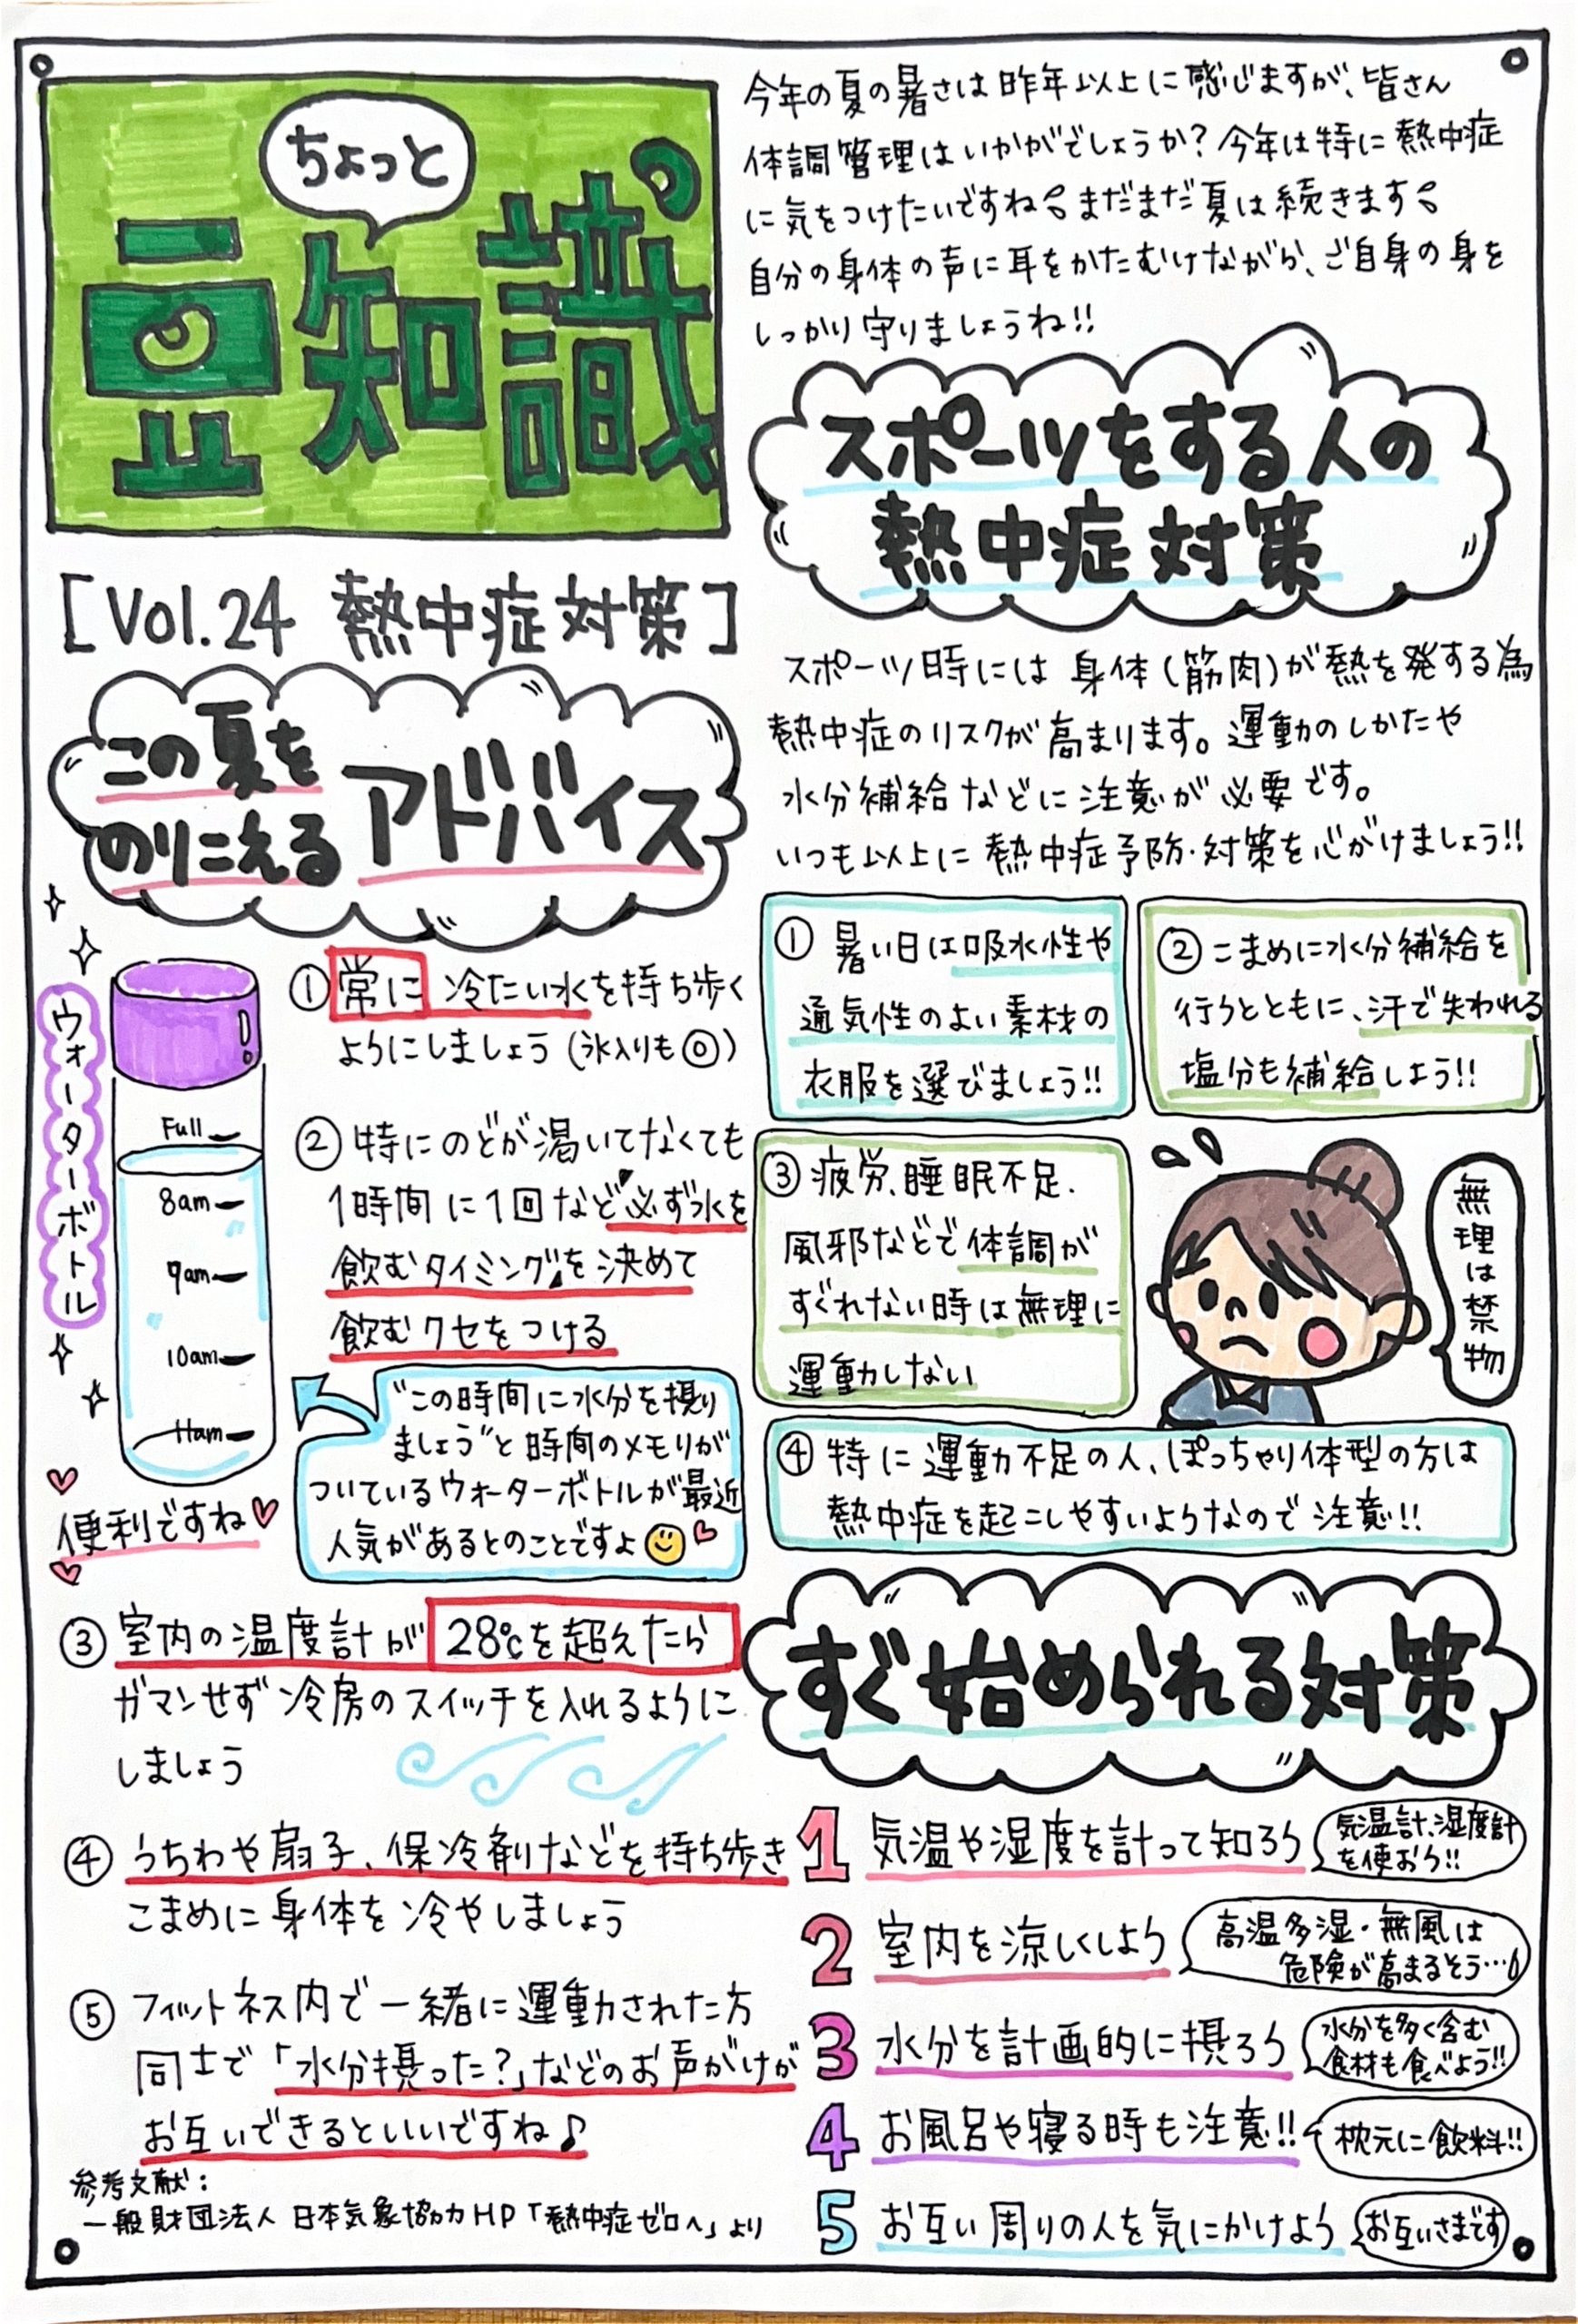 ちょっと
豆知識
[Vol.24 熱中症対策]
今年の夏の暑さは昨年以上に感じますが、皆さん
体調管理はいかがでしょうか?今年は特に熱中症
に気をつけたいですね。まだまだ夏は続きます。
自分の身体の声に耳をかたむけながら、ご自身の身を
しっかり守りましょうね!!
この夏を
のりこえる アドバイス
ウォーターボトル
Full
8am
9am
10am
11am
便利ですね
① 常に 冷たい水を持ち歩く
ようにしましょう(氷入りも◎)
② 特にのどが渇いてなくても
1時間に1回など"必ず水を
飲むタイミング"を決めて
飲むクセをつける
"この時間に水分を摂り
ましょう"と時間のメモリが
ついているウォーターボトルが最近
人気があるとのことですよ
③ 室内の温度計が 28℃を超えたら
ガマンせず冷房のスイッチを入れるように
しましょう
④ うちわや扇子、保冷剤などを持ち歩き
こまめに身体を冷やしましょう
⑤ フィットネス内で一緒に運動された方
同士で「水分摂った?」などのお声がけが
お互いできるといいですね♪
参考文献:
一般財団法人 日本気象協会HP「熱中症ゼロへ」より
スポーツをする人の
熱中症対策
スポーツ時には身体(筋肉)が熱を発する為
熱中症のリスクが高まります。運動のしかたや
水分補給などに注意が必要です。
いつも以上に熱中症予防・対策を心がけましょう!!
① 暑い日は吸水性や
通気性のよい素材の
衣服を選びましょう!!
② こまめに水分補給を
行うとともに、汗で失われる
塩分も補給しよう!!
③ 疲労、睡眠不足、
風邪などで体調が
すぐれない時は無理に
運動しない
無理は禁物
④ 特に運動不足の人、ぽっちゃり体型の方は
熱中症を起こしやすいようなので注意!!
すぐ始められる対策
1 気温や湿度を計って知ろう
気温計、湿度計
を使おう!!
2 室内を涼しくしよう
高温多湿・無風は
危険が高まるそう…
3 水分を計画的に摂ろう
水分を多く含む
食材も食べよう!!
4 お風呂や寝る時も注意!!
枕元に飲料!!
5 お互い周りの人を気にかけよう
お互いさまです